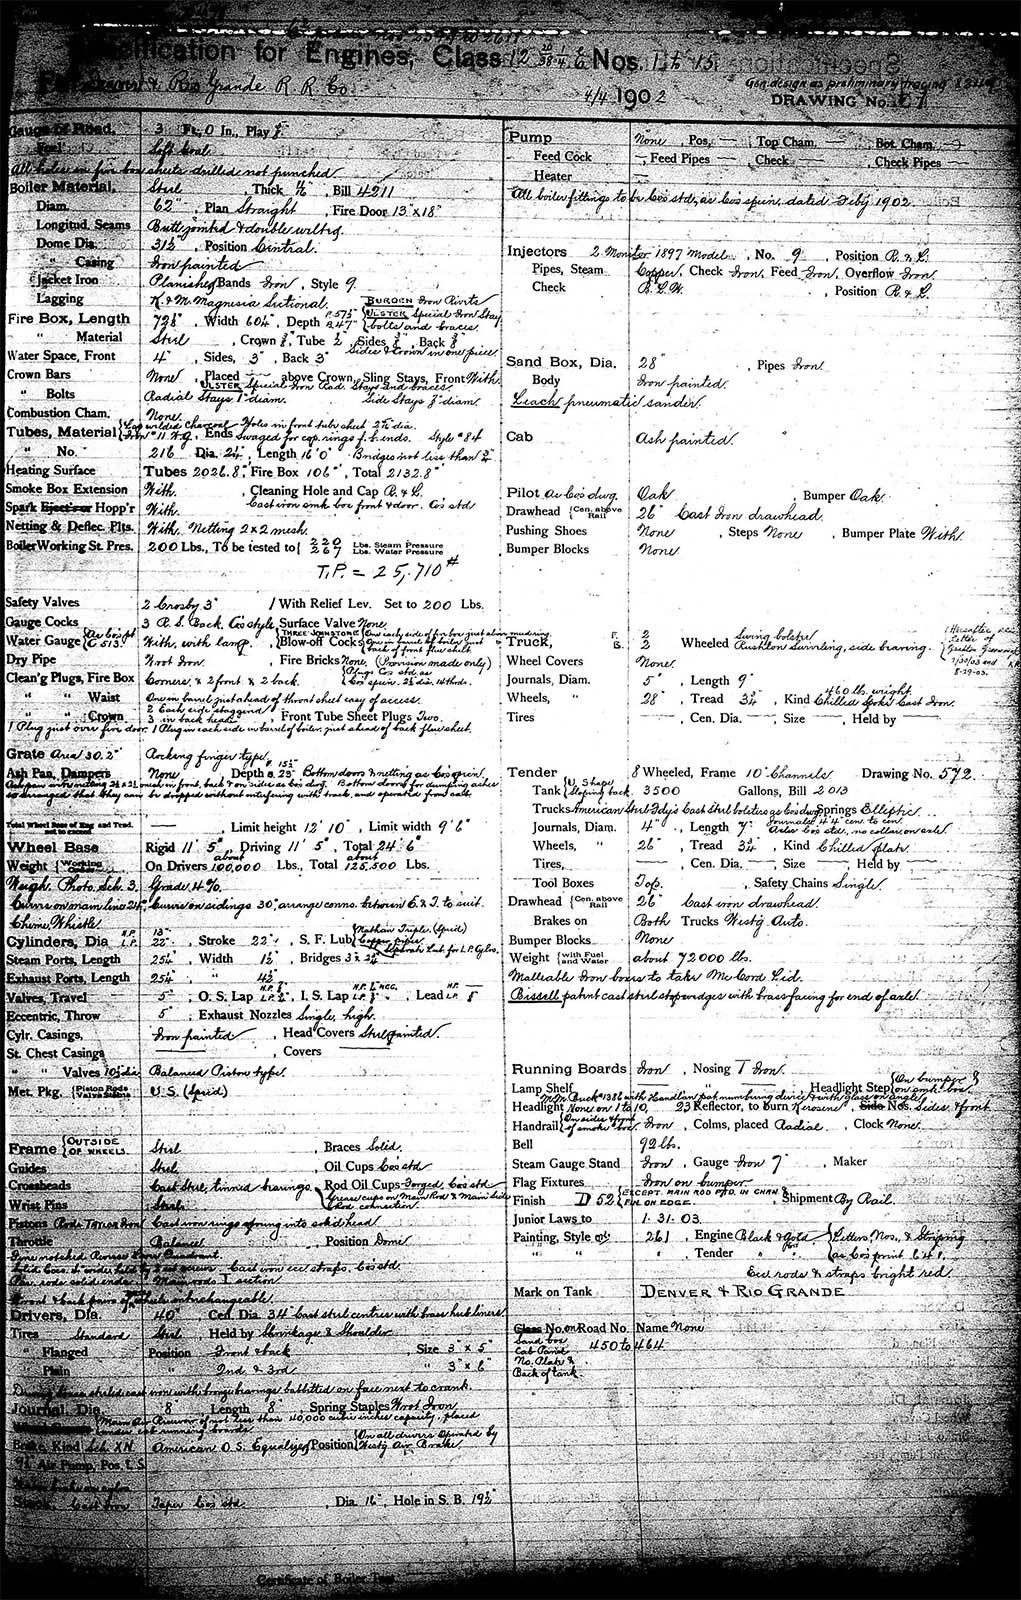 Specification for Engines, Class 12 20/38 1/4 E 6 Nos. 1 to 15
For Denver & Rio Grande R. R. Co.
4/4 1902
Gen. design as preliminary tracing
DRAWING No.
Gauge of Road, 3 Ft, 0 In., Play
Fuel Soft Coal
All holes in fire box sheets drilled not punched
Boiler Material, Steel , Thick , Bill 4211
Diam. 62" , Plan Straight , Fire Door 13" x 18"
Longitud. Seams Butt jointed & double welted
Dome Dia. 31½ , Position Central.
" Casing Iron painted
Jacket Iron Planished Bands Iron , Style 9.
Lagging K. & M. Magnesia Sectional. BURDEN Iron Rivets
Fire Box, Length , Width , Depth F. 57½ B. 47" ULSTER Special Iron Stay bolts and braces.
" Material Steel , Crown , Tube ½ , Sides , Back
Sides & Crown in one piece
Water Space, Front 4" , Sides, 3" , Back 3"
Crown Bars None , Placed — above Crown, Sling Stays, Front With.
" Bolts ULSTER Special Iron Rad. Stays and braces.
Radial Stays 1" diam. Side Stays diam.
Combustion Cham. None.
Tubes, Material Lap welded Charcoal Iron # 11 W.G. , Ends Holes in front tube sheet diam.
Swaged for cop. rings f. b. ends. Style # 84
" No. 216 Dia. 2¼ , Length 16' 0" Bridges not less than
Heating Surface Tubes 2026.8 , Fire Box 106 , Total 2132.8
Smoke Box Extension With. , Cleaning Hole and Cap R. & L.
Spark Ejector or Hopp'r With. Cast iron smk box front & door. Co's std
Netting & Deflec. Plts. With. Netting 2 x 2 mesh.
Boiler Working St. Pres. 200 Lbs., To be tested to 220 Lbs. Steam Pressure
267 Lbs. Water Pressure
T.P. = 25,710 #
Safety Valves 2 Crosby 3" 1 With Relief Lev. Set to 200 Lbs.
Gauge Cocks 3 R. S. Back, Co's style, Surface Valve None.
Water Gauge As Co's pt. C 513. With, with lamp. Blow-off Cocks THREE JOHNSTONE
Dry Pipe Wrot Iron. , Fire Bricks None, (Provision made only)
Clean'g Plugs, Fire Box Corners, & 2 front & 2 back.
" " Waist One in barrel just ahead of throat sheet easy of access.
" " Crown 2 Each side staggered
3 in back head , Front Tube Sheet Plugs Two.
1 Plug just over fire door. 1 Plug in each side in barrel of boiler, just ahead of back flue sheet.
Grate Area 30.2 Rocking finger type.
Ash Pan, Dampers None Depth Bottom doors & netting as Co's specn.
so arranged that they can be dropped without interfering with track, and operated from cab.
Total Wheel Base of Eng and Tend. not to exceed — , Limit height 12' 10" , Limit width 9' 6"
Wheel Base Rigid 11' 5" , Driving 11' 5" , Total 24' 6"
Weight Working Order On Drivers about 100,000 Lbs., Total about 125,500 Lbs.
Weigh. Photo. Sch. 3. Grade, 4 %.
Curves on main line 24°, Curves on sidings 30°, arrange conns. between E. & T. to suit.
Chime Whistle
Cylinders, Dia H.P. 13" L.P. 22" , Stroke 22" , S. F. Lub Nathan Triple. (Specd) Copper pipes
Steam Ports, Length 25¼ , Width 1½ , Bridges
Exhaust Ports, Length 25¼ " 4½
Valves, Travel 5" , O. S. Lap , I. S. Lap , Lead
Eccentric, Throw 5" , Exhaust Nozzles Single, high.
Cylr. Casings, Iron painted , Head Covers Steel painted.
St. Chest Casings — , Covers —
" " Valves 10½ dia Balanced Piston type.
Met. Pkg. Piston Rods Valve Stems U. S. (Specd)
Frame OUTSIDE OF WHEELS. Steel , Braces Solid.
Guides Steel , Oil Cups Co's std
Crossheads Cast Steel, tinned bearings. Rod Oil Cups Forged, Co's std
Wrist Pins Steel Grease cups on Main Rod & Main Side Rod connection.
Pistons Rods Taylor Iron Cast iron rings sprung into solid head
Throttle Balance , Position Dome
Fine notched Reverse Lever Quadrant.
Cast iron ecc straps. Co's std
Par. rods solid ends. Main rods I section
Front & back pairs of wheels interchangeable.
Drivers, Dia. 40" , Cen. Dia. 34 Cast steel centres with brass hub liners
Tires Standard Steel Held by Shrinkage & Shoulder
" Flanged Position Front & back , Size 3" x 5"
" Plain " 2nd & 3rd " 3" x 6"
Driving boxes steeled cast iron with bronze bearings babbitted on face next to crank.
Journal, Dia. 8 , Length 8" , Spring Staples Wrot Iron.
Main Air Reservoir of not less than 40,000 cubic inches capacity, placed under left running boards
Brake, Kind Sch. XN American O. S. Equalized Position On all drivers Operated by Westg Air Brake
9½ Air Pump, Pos. L. S.
Stack, Cast Iron Taper Co's std , Dia. 16" , Hole in S. B. 19½"
Certificate of Boiler Test
Pump None , Pos. — Top Cham. — , Bot. Cham. —
Feed Cock — , Feed Pipes — , Check — , Check Pipes —
Heater —
All boiler fittings to be Co's std, as Co's specn, dated Feby 1902.
Injectors 2 Monitor 1897 Model , No. 9 , Position R. & L.
Pipes, Steam Copper, Check Iron, Feed Iron, Overflow Iron.
Check B. L. W. , Position R. & L.
Sand Box, Dia. 28" , Pipes Iron.
Body Iron painted.
Leach pneumatic sander.
Cab Ash painted.
Pilot as Co's dwg. Oak , Bumper Oak.
Drawhead Cen. above Rail 26" Cast Iron drawhead.
Pushing Shoes None , Steps None , Bumper Plate With.
Bumper Blocks None
Truck, F. 2 B. 2 Wheeled Swing bolster
Rushton Swiveling, side bearing.
Hereafter see Letter of
7/30/03 and
8-29-03.
Wheel Covers None.
Journals, Diam. 5" , Length 9"
Wheels, " 28" , Tread 3¾ , Kind 460 lbs. weight Chilled Spoke Cast Iron.
Tires — , Cen. Dia. — , Size — , Held by —
Tender 8 Wheeled, Frame 10" Channels Drawing No. 572.
Tank U Shape Sloping back 3500 Gallons, Bill 2013
Trucks American Steel Fdy's Cast steel bolsters as Co's dwg Springs Elliptic
Journals, Diam. 4" , Length 7" Journals 44" cen. to cen. Axles Co's std, no collar on axle
Wheels, " 26" , Tread 3¾ , Kind Chilled plate.
Tires, — , Cen. Dia. — , Size — , Held by —
Tool Boxes Top. , Safety Chains Single.
Drawhead Cen. above Rail 26" Cast iron drawhead.
Brakes on Both Trucks Westg Auto.
Bumper Blocks None
Weight with Fuel and Water about 72000 lbs.
Malleable Iron boxes to take McCord Lid.
Bissell patent cast steel stop wedges with brass facing for end of axle
Running Boards Iron , Nosing T Iron.
Lamp Shelf " Headlight Step On bumper & on smk. box.
M. M. Buck # 1386 with Handlan pat. numbering device & with glass on angle
Headlight None on 1 to 10, 23 Reflector, to burn Kerosine , Side Nos. Sides & front
Handrail On sides & front of smoke box Iron , Colms, placed Radial. , Clock None.
Bell 92 lbs.
Steam Gauge Stand Iron , Gauge Iron 7" , Maker
Flag Fixtures Iron on bumper.
Finish D 52 EXCEPT. MAIN ROD FIN. ON EDGE , Shipment By Rail.
Junior Laws to 1. 31. 03.
Painting, Style 261 , Engine Black & Gold Letters, Nos., & Striping
" " " , Tender " " as Co's print 641.
Ecc rods & straps bright red.
Mark on Tank DENVER & RIO GRANDE
Class No. on Road No. Name None
Sand box
Cab Panel 450 to 464
No. Plate &
Back of tank.